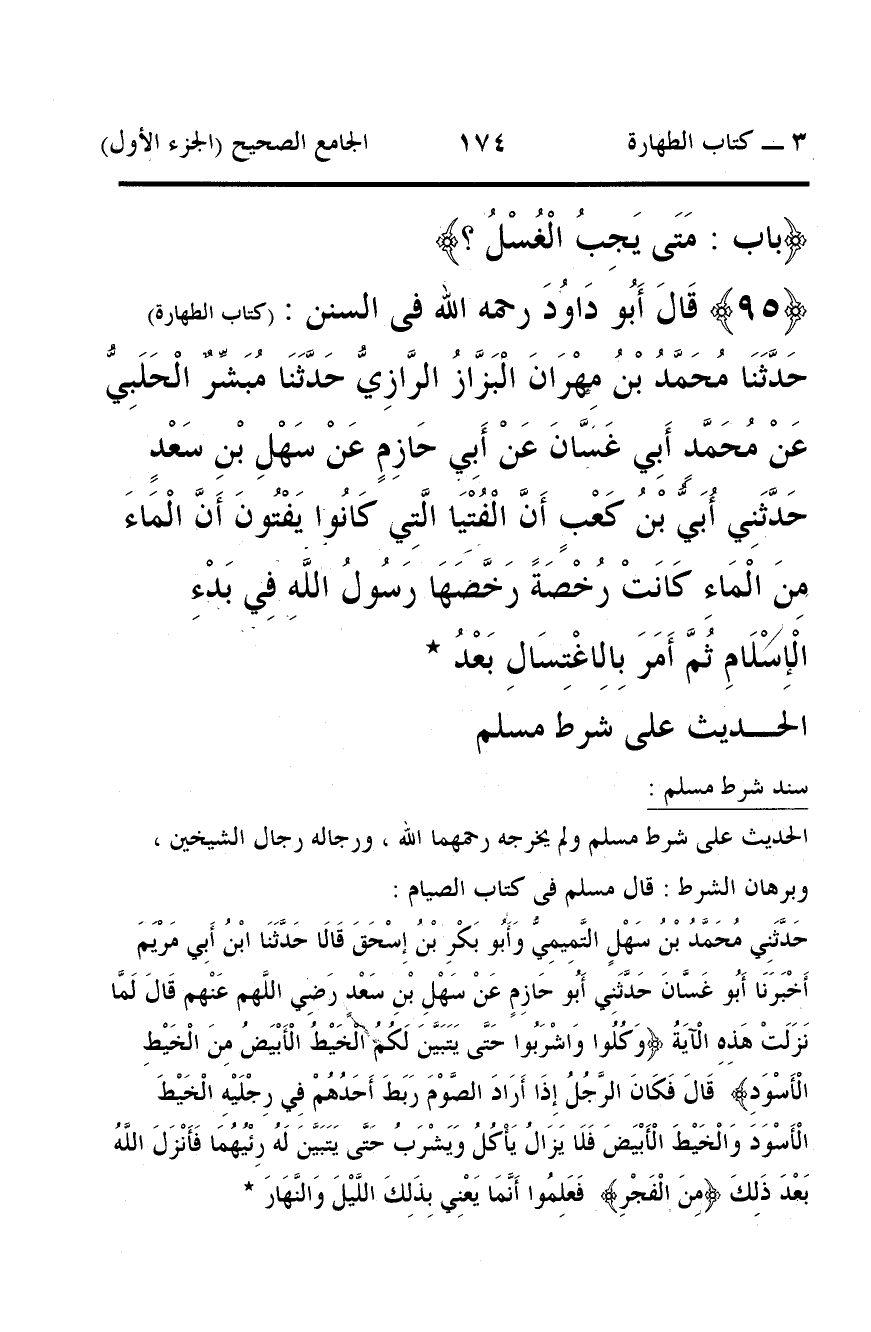 ٣ ــ كتاب الطهارة ١٧٤ الجامع الصحيح (الجزء الأول)
﴿باب : مَتَى يَجِبُ الْغُسْلُ ؟﴾
﴿٩٥﴾ قَالَ أَبُو دَاوُدَ رحمه الله فى السنن : (كتاب الطهارة)
حَدَّثَنَا مُحَمَّدُ بْنُ مِهْرَانَ الْبَزَّازُ الرَّازِيُّ حَدَّثَنَا مُبَشِّرٌ الْحَلَبِيُّ
عَنْ مُحَمَّدٍ أَبِي غَسَّانَ عَنْ أَبِي حَازِمٍ عَنْ سَهْلِ بْنِ سَعْدٍ
حَدَّثَنِي أُبَيُّ بْنُ كَعْبٍ أَنَّ الْفُتْيَا الَّتِي كَانُوا يَفْتُونَ أَنَّ الْمَاءَ
مِنَ الْمَاءِ كَانَتْ رُخْصَةً رَخَّصَهَا رَسُولُ اللَّهِ فِي بَدْءِ
الْإِسْلَامِ ثُمَّ أَمَرَ بِالِاغْتِسَالِ بَعْدُ *
الحـــديث على شرط مسلم
سند شرط مسلم :
الحديث على شرط مسلم ولم يخرجه رحمهما الله ، ورجاله رجال الشيخين ،
وبرهان الشرط : قال مسلم فى كتاب الصيام :
حَدَّثَنِي مُحَمَّدُ بْنُ سَهْلٍ التَّمِيمِيُّ وَأَبُو بَكْرِ بْنُ إِسْحَقَ قَالَا حَدَّثَنَا ابْنُ أَبِي مَرْيَمَ
أَخْبَرَنَا أَبُو غَسَّانَ حَدَّثَنِي أَبُو حَازِمٍ عَنْ سَهْلِ بْنِ سَعْدٍ رَضِي اللَّهم عَنْهم قَالَ لَمَّا
نَزَلَتْ هَذِهِ الْآيَةُ ﴿وَكُلُوا وَاشْرَبُوا حَتَّى يَتَبَيَّنَ لَكُمُ الْخَيْطُ الْأَبْيَضُ مِنَ الْخَيْطِ
الْأَسْوَدِ﴾ قَالَ فَكَانَ الرَّجُلُ إِذَا أَرَادَ الصَّوْمَ رَبَطَ أَحَدُهُمْ فِي رِجْلَيْهِ الْخَيْطَ
الْأَسْوَدَ وَالْخَيْطَ الْأَبْيَضَ فَلَا يَزَالُ يَأْكُلُ وَيَشْرَبُ حَتَّى يَتَبَيَّنَ لَهُ رِئْيُهُمَا فَأَنْزَلَ اللَّهُ
بَعْدَ ذَلِكَ ﴿مِنَ الْفَجْرِ﴾ فَعَلِمُوا أَنَّمَا يَعْنِي بِذَلِكَ اللَّيْلَ وَالنَّهَارَ *